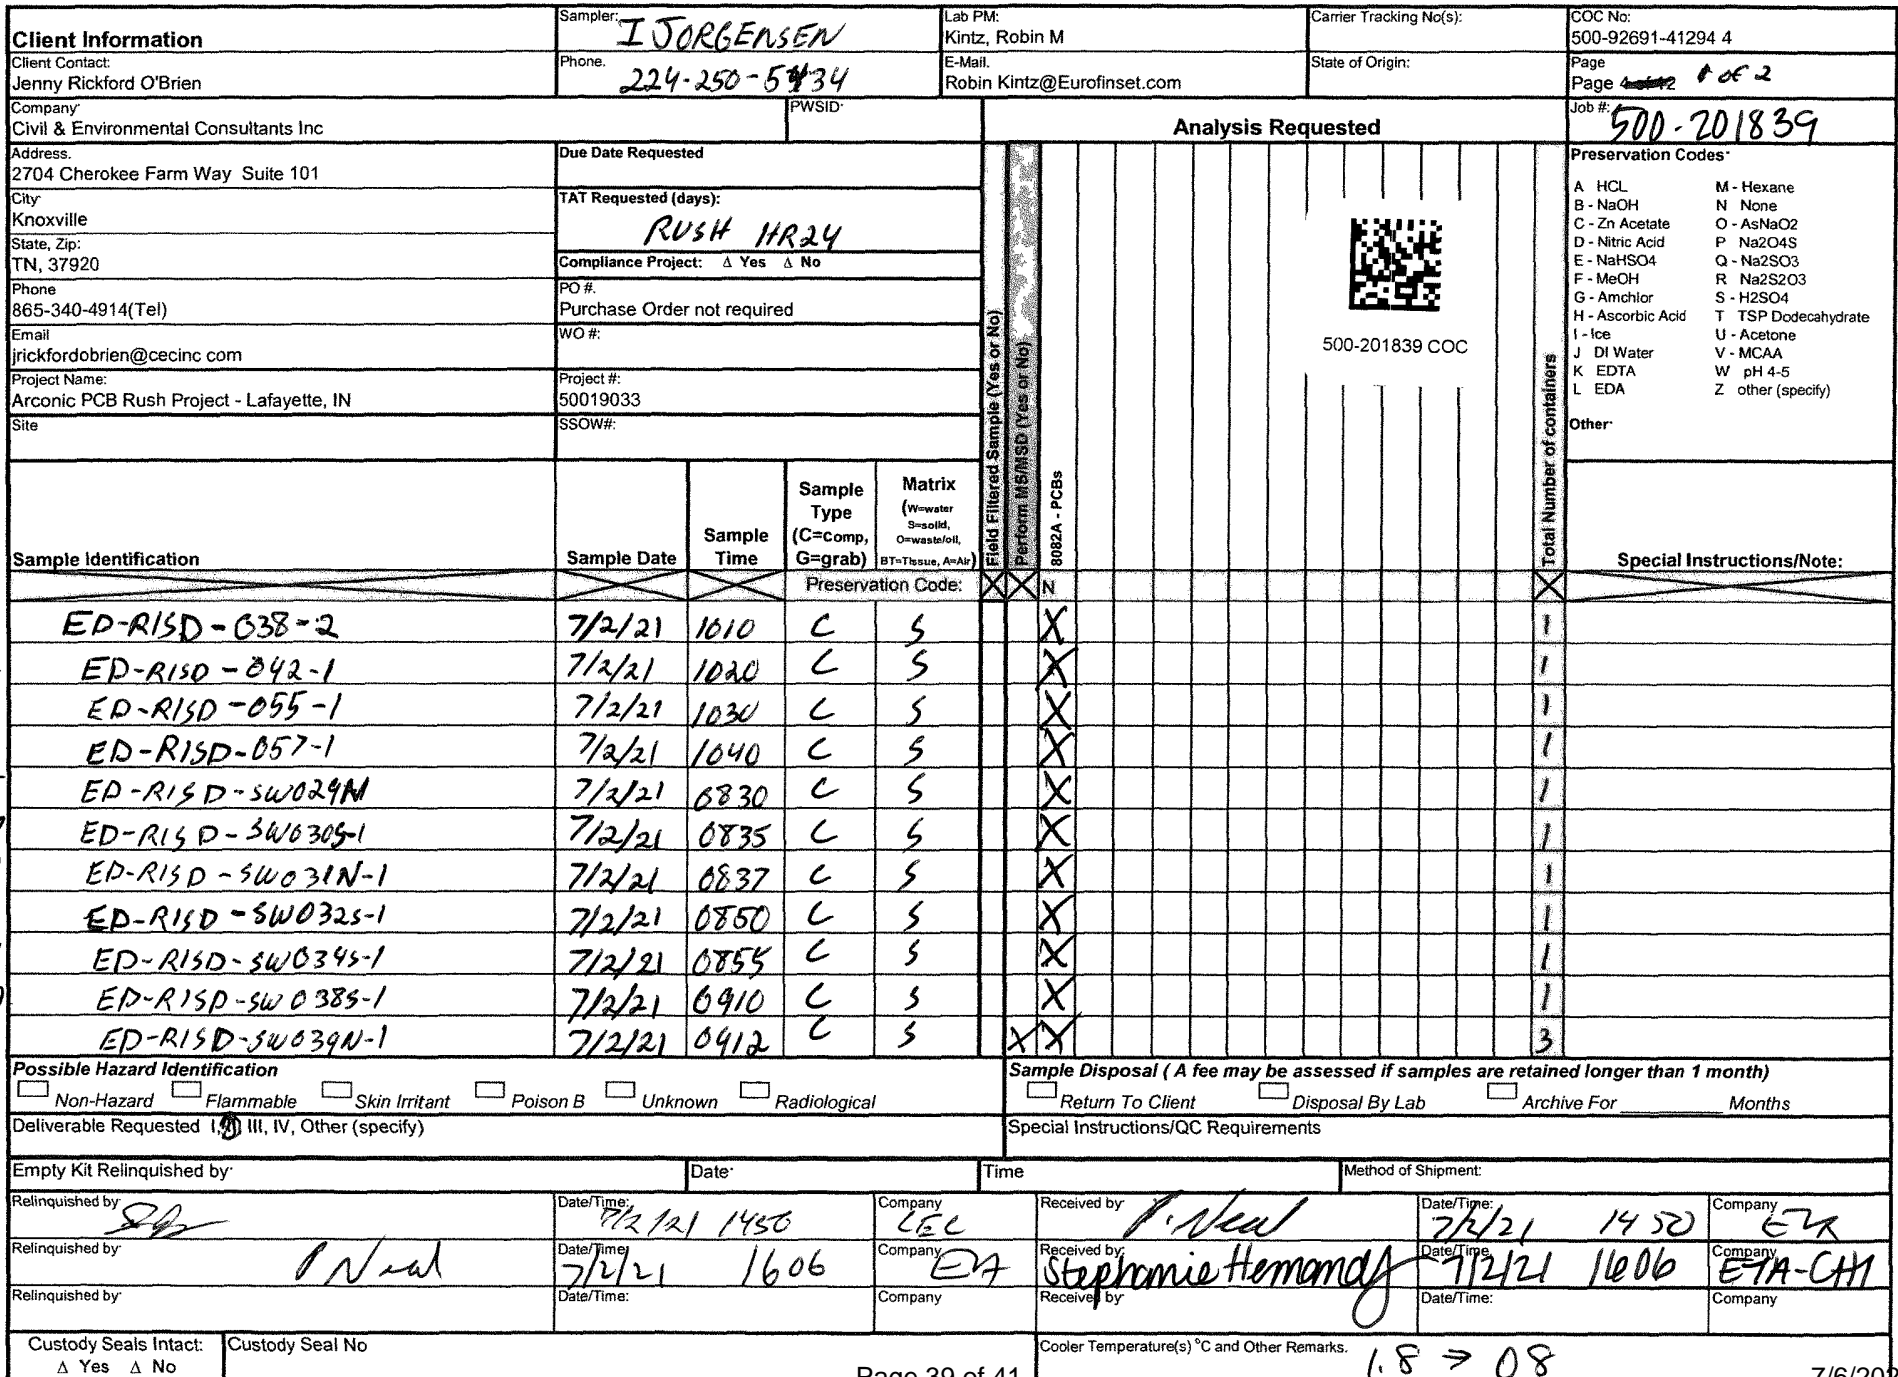 Client Information
Sampler: I JORGENSEN
Lab PM:
Kintz, Robin M
Carrier Tracking No(s):
COC No:
500-92691-41294 4
Client Contact:
Jenny Rickford O'Brien
Phone. 224-250-5434
E-Mail.
Robin Kintz@Eurofinset.com
State of Origin:
Page
Page 1 OF 2
Company
Civil & Environmental Consultants Inc
PWSID
Analysis Requested
Job #: 500-201839
Address.
2704 Cherokee Farm Way Suite 101
City
Knoxville
State, Zip:
TN, 37920
Phone
865-340-4914(Tel)
Email
jrickfordobrien@cecinc com
Project Name:
Arconic PCB Rush Project - Lafayette, IN
Site
Due Date Requested
TAT Requested (days):
RUSH HR24
Compliance Project: Δ Yes Δ No
PO #.
Purchase Order not required
WO #:
Project #:
50019033
SSOW#:
Field Filtered Sample (Yes or No)
Perform MS/MSD (Yes or No)
8082A - PCBs
500-201839 COC
Total Number of containers
Preservation Codes
A HCL M - Hexane
B - NaOH N None
C - Zn Acetate O - AsNaO2
D - Nitric Acid P Na2O4S
E - NaHSO4 Q - Na2SO3
F - MeOH R Na2S2O3
G - Amchlor S - H2SO4
H - Ascorbic Acid T TSP Dodecahydrate
I - Ice U - Acetone
J DI Water V - MCAA
K EDTA W pH 4-5
L EDA Z other (specify)
Other
Sample Identification
Sample Date
Sample Time
Sample Type (C=comp, G=grab)
Matrix (W=water S=solid, O=waste/oil, BT=Tissue, A=Air)
Special Instructions/Note:
Preservation Code: X X N X
ED-RISD-038-2 7/2/21 1010 C S X 1
ED-RISD-042-1 7/2/21 1020 C S X 1
ED-RISD-055-1 7/2/21 1030 C S X 1
ED-RISD-057-1 7/2/21 1040 C S X 1
ED-RISD-SW029N 7/2/21 0830 C S X 1
ED-RISD-SW030S-1 7/2/21 0835 C S X 1
ED-RISD-SW031N-1 7/2/21 0837 C S X 1
ED-RISD-SW032S-1 7/2/21 0850 C S X 1
ED-RISD-SW034S-1 7/2/21 0855 C S X 1
ED-RISD-SW038S-1 7/2/21 0910 C S X 1
ED-RISD-SW039N-1 7/2/21 0912 C S X X 3
Possible Hazard Identification
Non-Hazard Flammable Skin Irritant Poison B Unknown Radiological
Sample Disposal ( A fee may be assessed if samples are retained longer than 1 month)
Return To Client Disposal By Lab Archive For ________ Months
Deliverable Requested I, II, III, IV, Other (specify)
Special Instructions/QC Requirements
Empty Kit Relinquished by
Date
Time
Method of Shipment:
Relinquished by
Date/Time: 7/2/21 1450
Company CEC
Received by P. Neal
Date/Time: 7/2/21 1450
Company ETA
Relinquished by P Neal
Date/Time: 7/2/21 1606
Company ETA
Received by: Stephanie Hernandez
Date/Time 7/2/21 1606
Company ETA-CHI
Relinquished by
Date/Time:
Company
Received by
Date/Time:
Company
Custody Seals Intact:
Δ Yes Δ No
Custody Seal No
Cooler Temperature(s) °C and Other Remarks. 1.8 → 08
Page 39 of 41
7/6/202